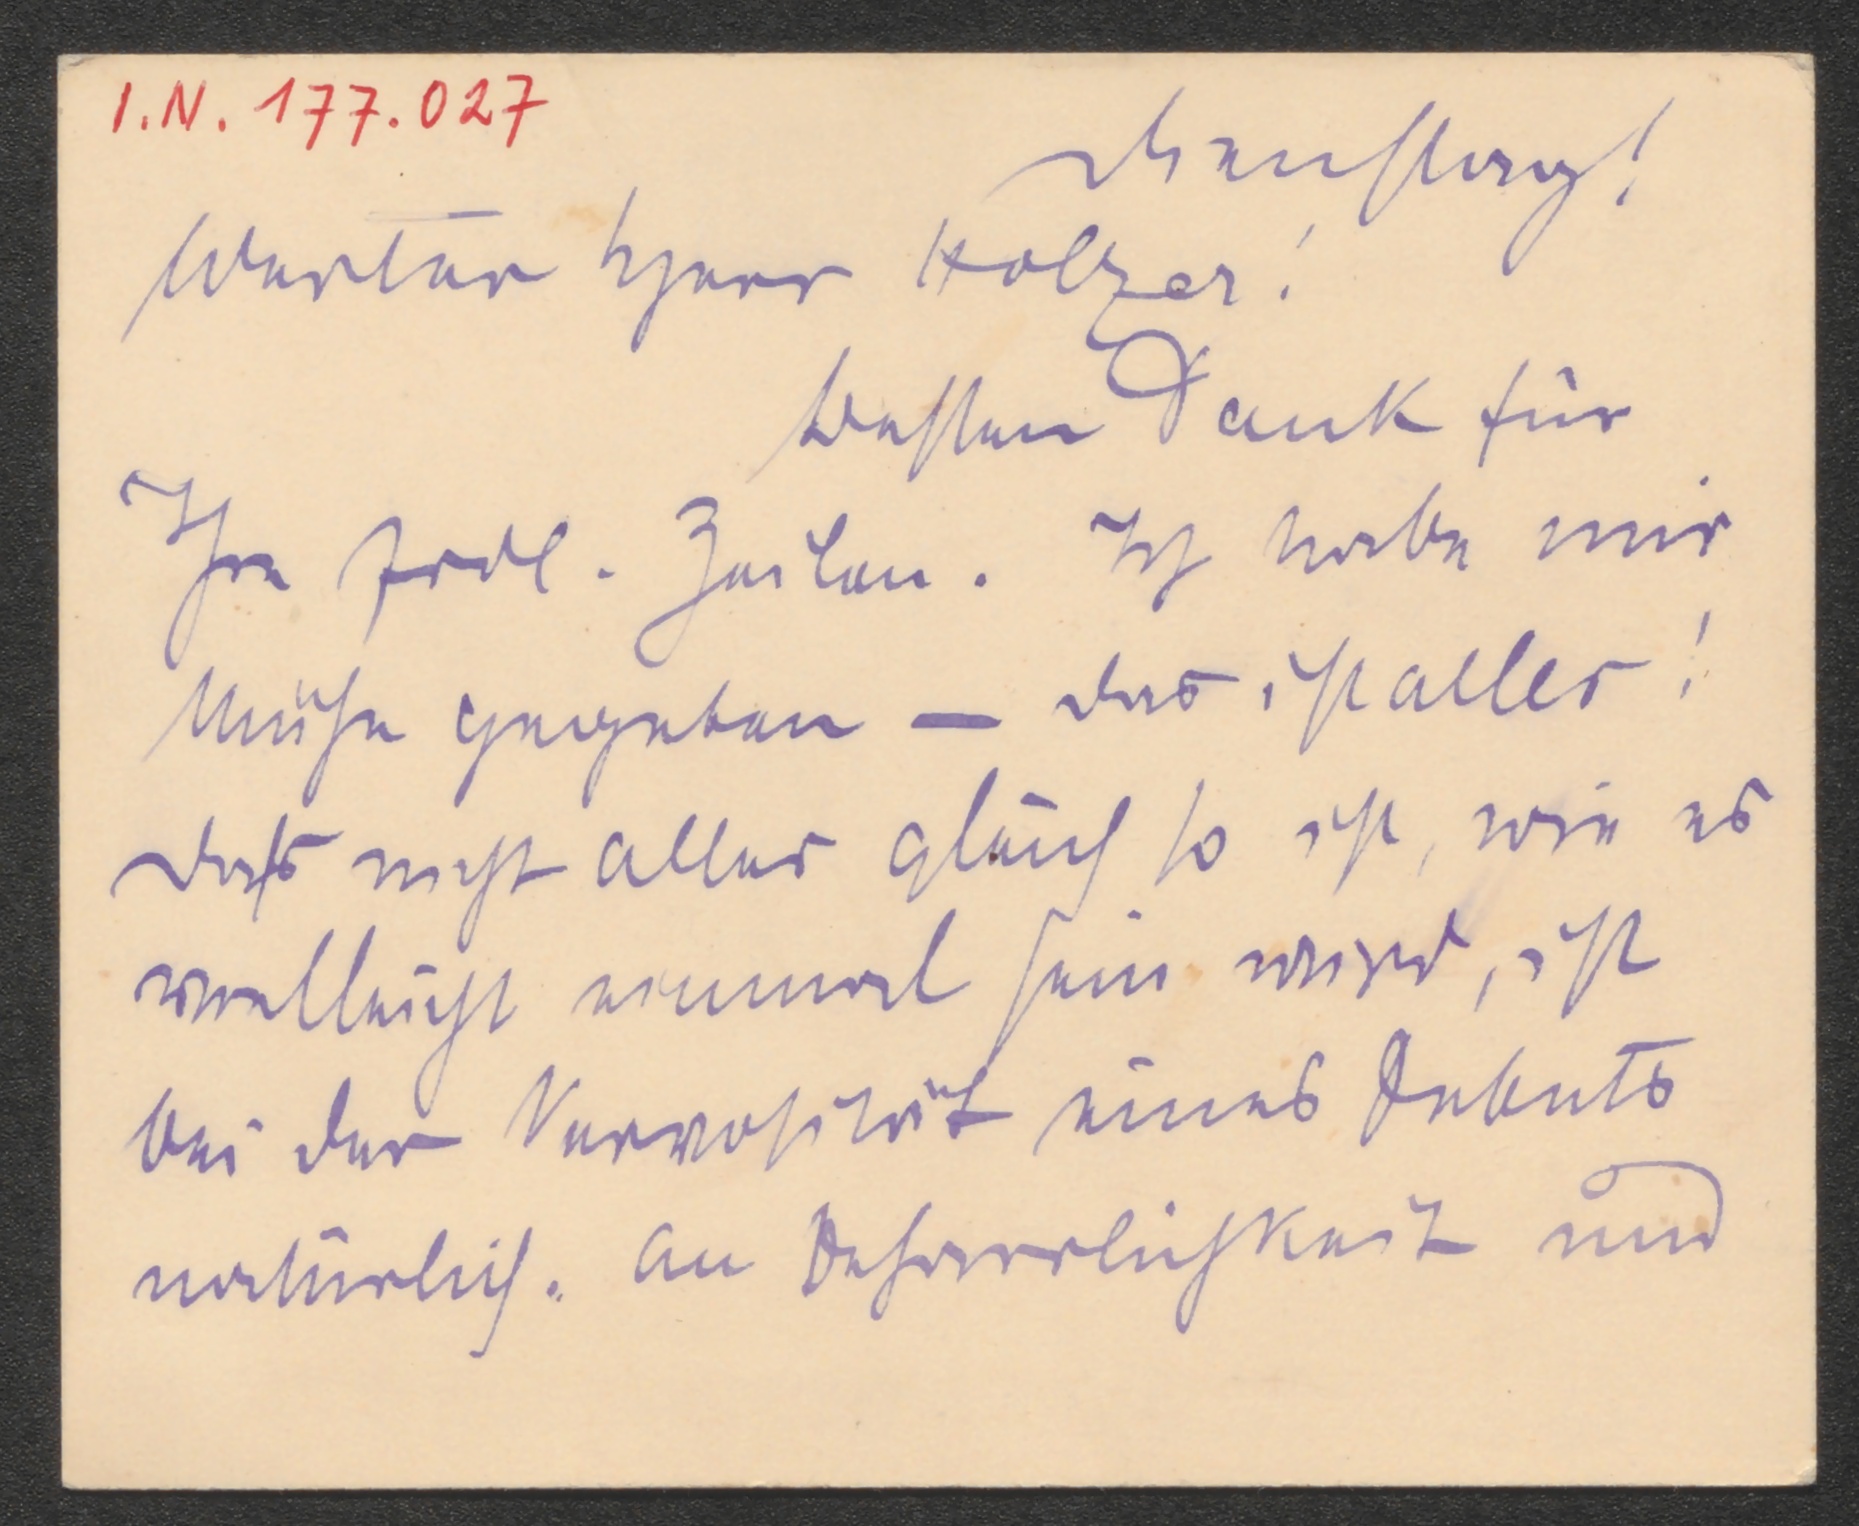 I.N. 177.027
Dienstag!
Werter Herr Holzer!
Besten Dank für
Ihre frdl. Zeilen. Ich habe mir
Mühe gegeben — das ist alles!
Dass nicht alles gleich so ist, wie es
vielleicht einmal sein wird, ist
bei der Nervosität eines Debuts
natürlich. An Beharrlichkeit und